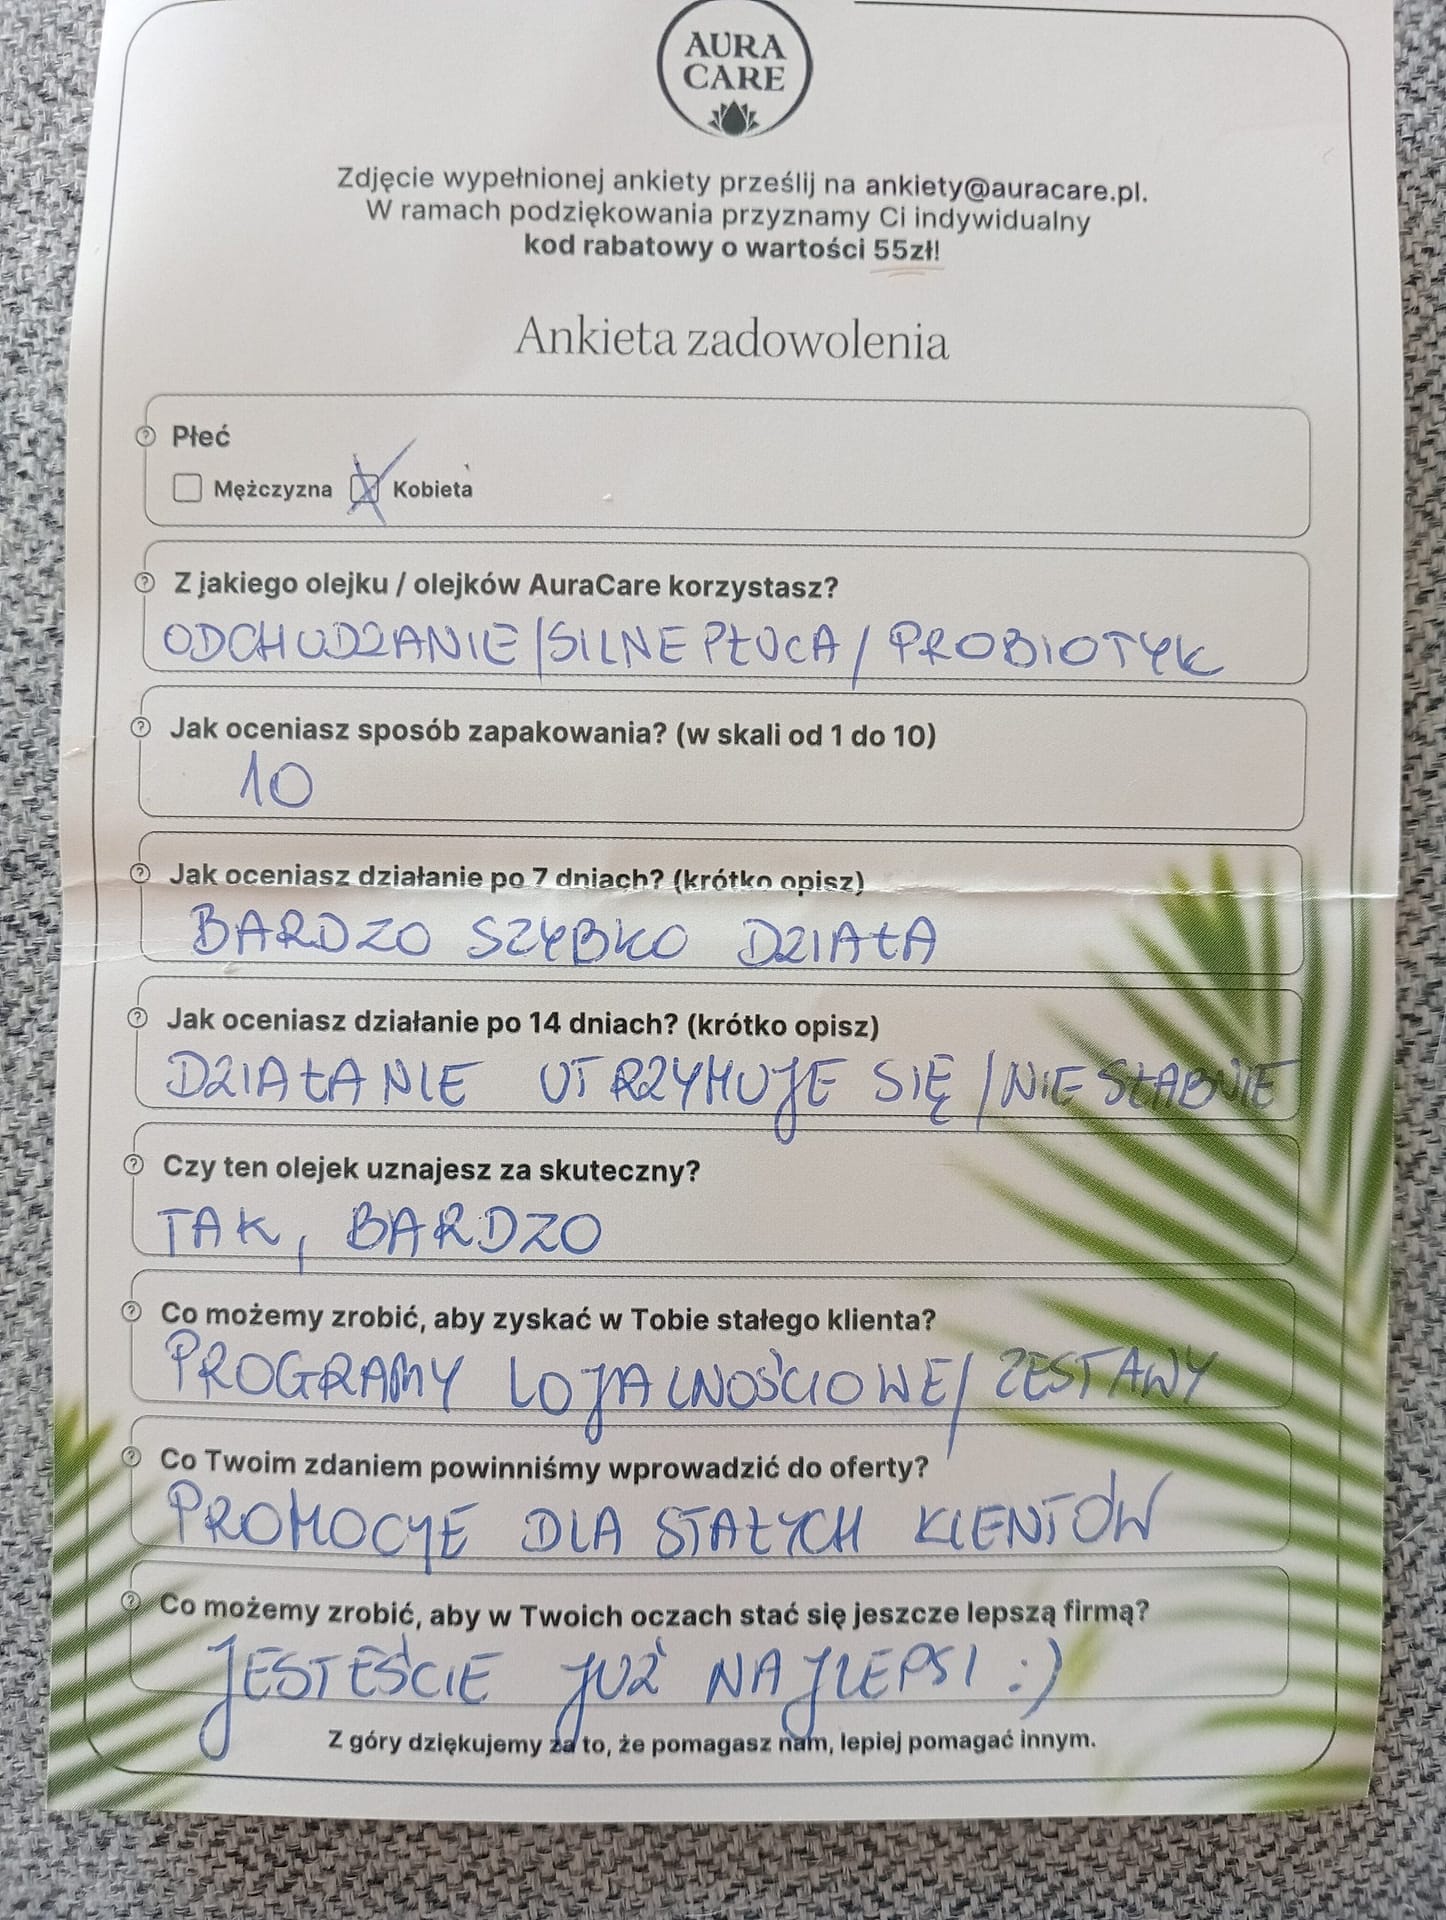 AURA
CARE
Zdjęcie wypełnionej ankiety prześlij na ankiety@auracare.pl.
W ramach podziękowania przyznamy Ci indywidualny
kod rabatowy o wartości 55zł!
Ankieta zadowolenia
Płeć
Mężczyzna Kobieta
Z jakiego olejku / olejków AuraCare korzystasz?
ODCHUDZANIE/SILNE PŁUCA/PROBIOTYK
Jak oceniasz sposób zapakowania? (w skali od 1 do 10)
10
Jak oceniasz działanie po 7 dniach? (krótko opisz)
BARDZO SZYBKO DZIAŁA
Jak oceniasz działanie po 14 dniach? (krótko opisz)
DZIAŁANIE UTRZYMUJE SIĘ/NIE SŁABNIE
Czy ten olejek uznajesz za skuteczny?
TAK, BARDZO
Co możemy zrobić, aby zyskać w Tobie stałego klienta?
PROGRAMY LOJALNOŚCIOWE/ZESTAWY
Co Twoim zdaniem powinniśmy wprowadzić do oferty?
PROMOCYE DLA STAŁYCH KLIENTÓW
Co możemy zrobić, aby w Twoich oczach stać się jeszcze lepszą firmą?
JESTEŚCIE JUŻ NAJLEPSI :)
Z góry dziękujemy za to, że pomagasz nam, lepiej pomagać innym.